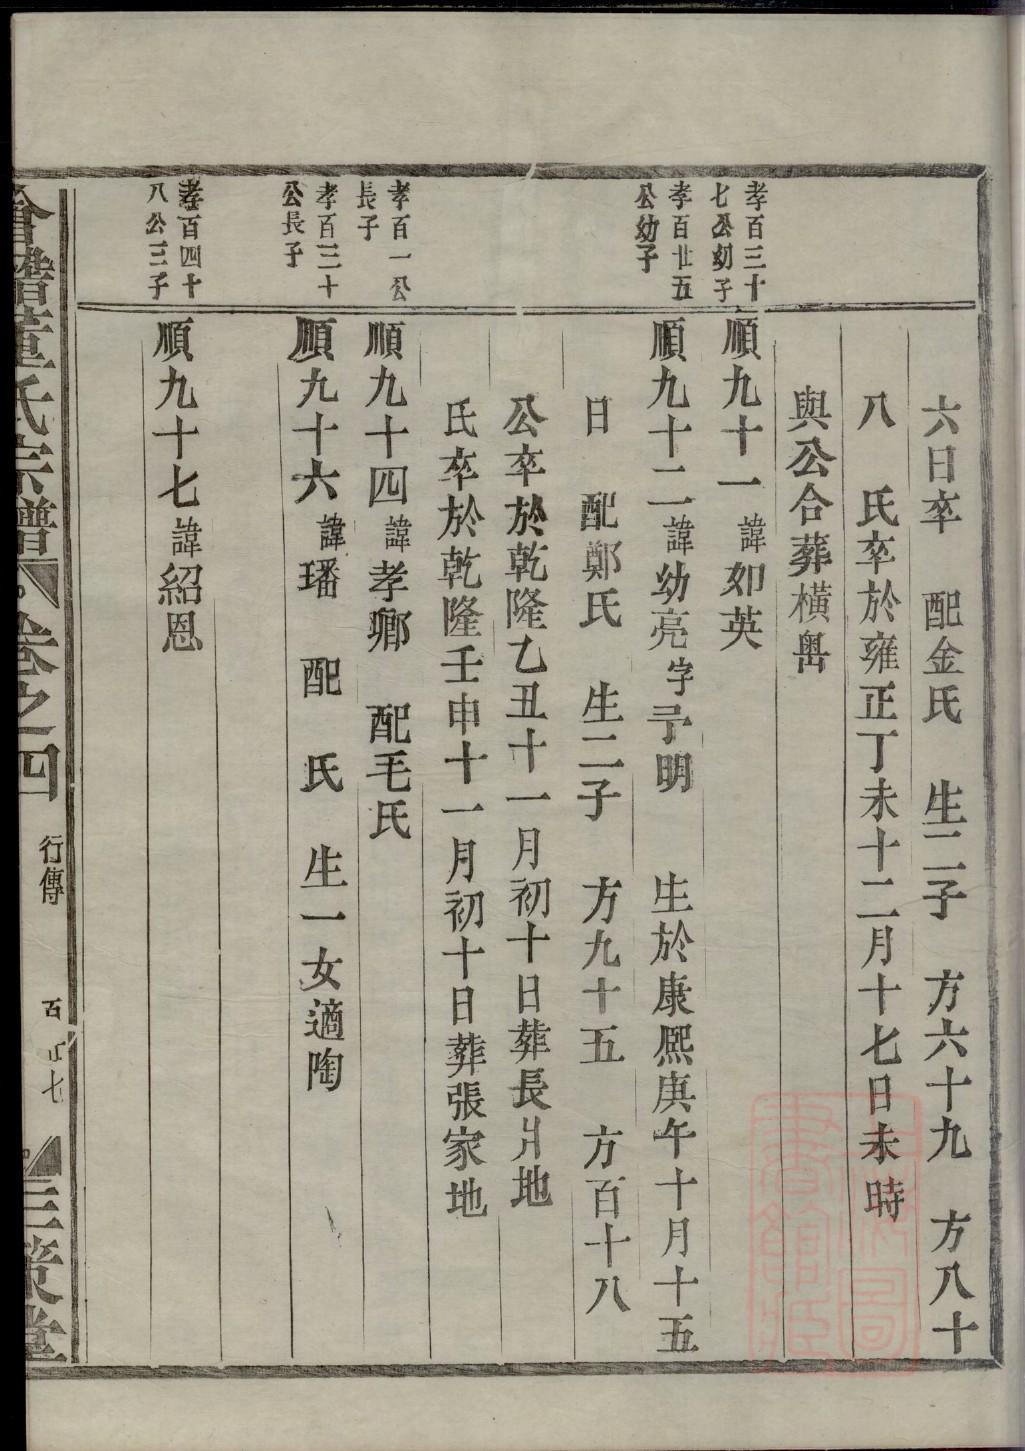 六日卒　配金氏　生二子　方六十九　方八十
八　氏卒於雍正丁未十二月十七日未時
與公合葬橫嶴
孝百三十
七公幼子
順九十一諱如英
孝百廿五
公幼子
順九十二諱幼亮字予明　生於康熙庚午十月十五
日　配鄭氏　生二子　方九十五　方百十八
公卒於乾隆乙丑十一月初十日葬長爿地
氏卒於乾隆壬申十一月初十日葬張家地
孝百一公
長子
順九十四諱孝鄉　配毛氏
孝百三十
公長子
順九十六諱璠　配　氏　生一女適陶
孝百四十
八公三子
順九十七諱紹恩
會稽董氏宗譜　卷之四　行傳　百　七　三策堂